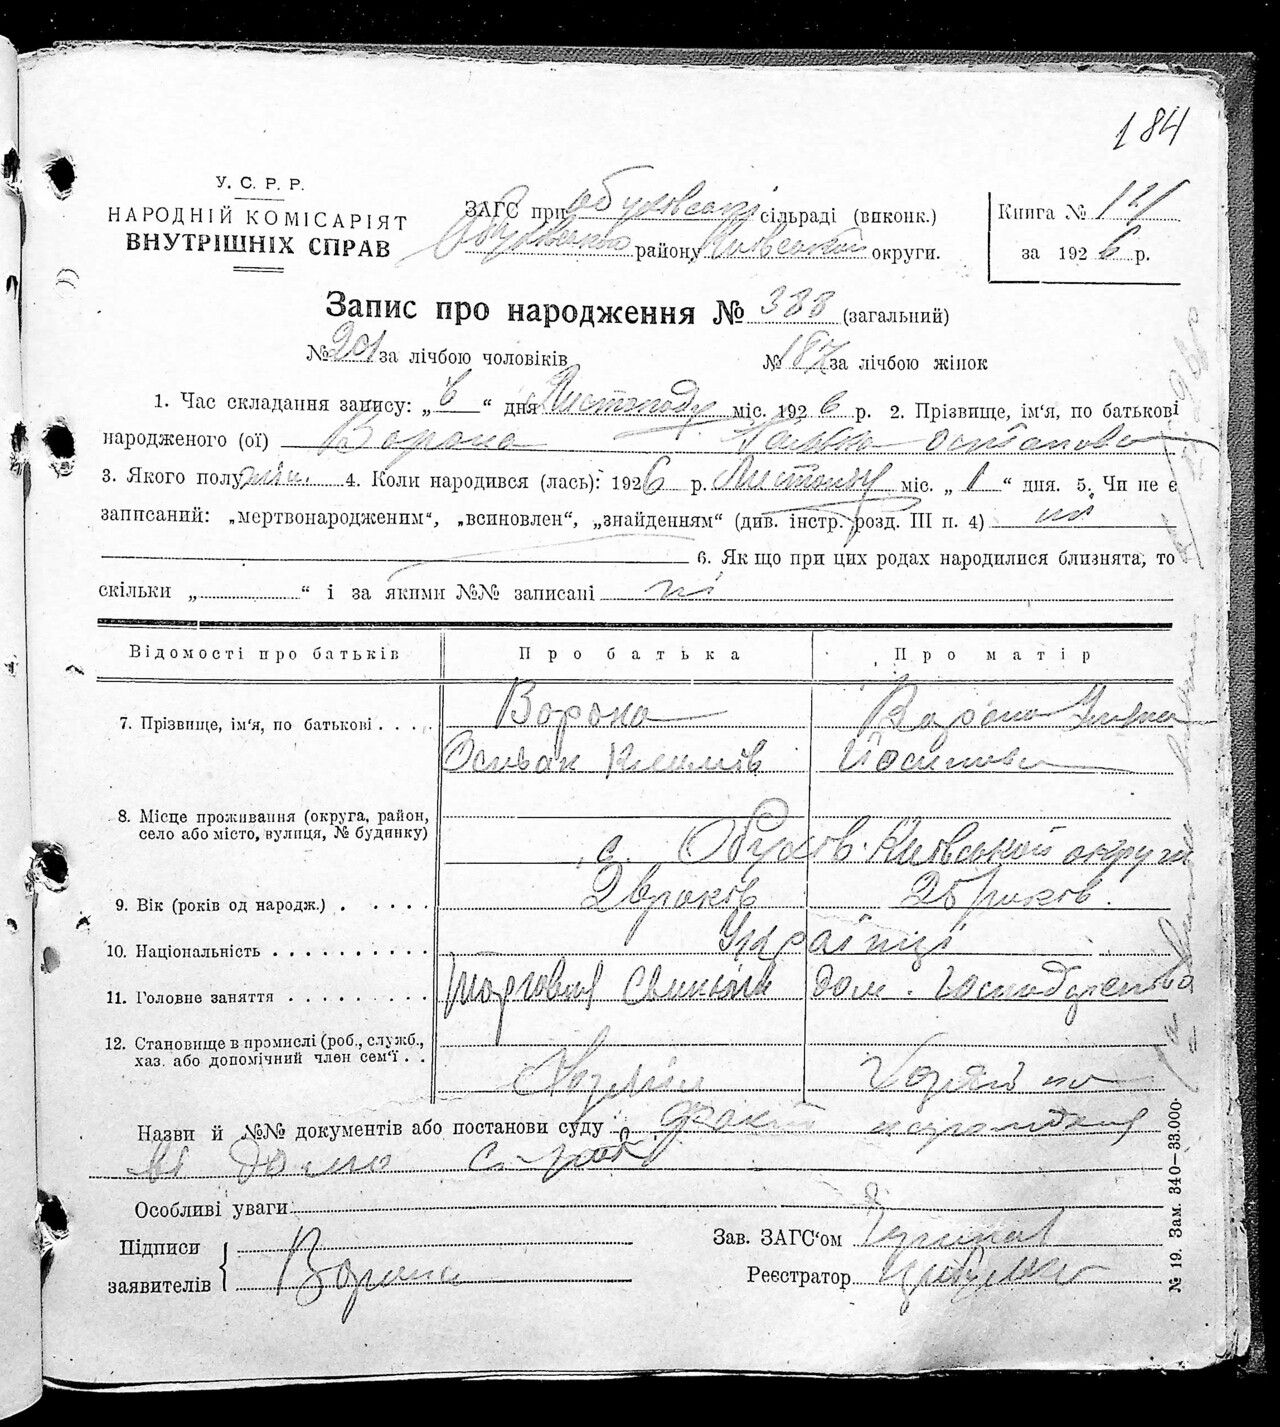 184
У. С. Р. Р.
НАРОДНІЙ КОМІСАРІЯТ
ВНУТРІШНІХ СПРАВ
ЗАГС при Обухівській сільраді (виконк.)
Обухівського району Київської округи.
Книга № 121
за 1926 р.
Запис про народження № 388 (загальний)
№ 201 за лічбою чоловіків № 187 за лічбою жінок
1. Час складання запису: „6“ дня Листопаду міс. 1926 р. 2. Прізвище, ім‘я, по батькові
народженого (ої) Ворона Остапова
3. Якого полу жін. 4. Коли народився (лась): 1926 р. Листопаду міс. „1“ дня. 5. Чи не є
записаний: „мертвонародженим“, „всиновлен“, „знайденням“ (див. інстр. розд. III п. 4) ні
6. Як що при цих родах народилися близнята, то
скільки „ “ і за якими №№ записані ні
Відомості про батьків Про батька Про матір
7. Прізвище, ім‘я, по батькові . . . . Ворона Ворона Уляна
Климів Йосипова
8. Місце проживання (округа, район,
село або місто, вулиця, № будинку)
с. Обухов Київської округи
9. Вік (років од народж.) . . . . . років 25 років.
10. Національність . . . . . . . . . . Українці
11. Головне заняття . . . . . . . . . торговля свиньми дом. господарство
12. Становище в промислі (роб., служб.,
хаз. або допомічний член сем‘ї . .
Хозяїн
Назви й №№ документів або постанови суду факт народження
Особливі уваги
Підписи
заявителів
Ворона
Зав. ЗАГС‘ом
Реєстратор
№ 19. Зам. 340—33.000.